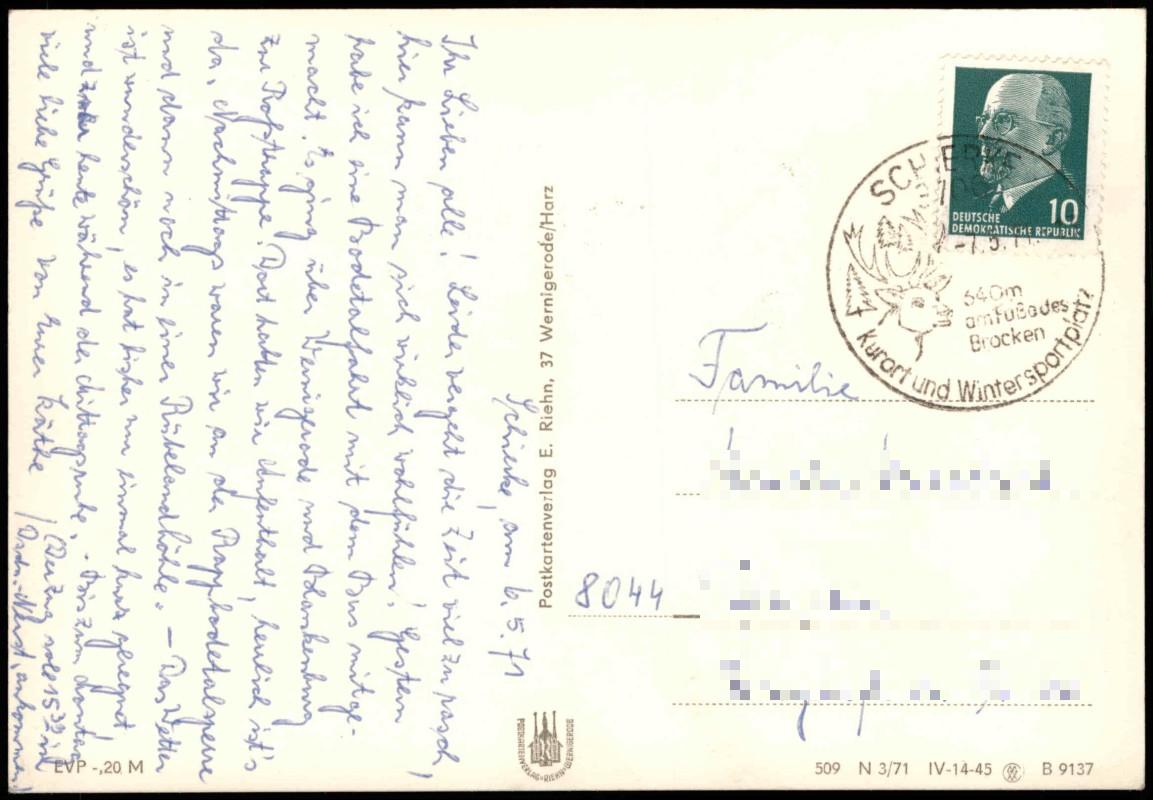 Schierke, am 6.5.71
Ihr Lieben alle! Leider vergeht die Zeit viel zu rasch,
hier kann man sich wirklich wohlfühlen. Gestern
habe ich eine Bodetalfahrt mit dem Bus mitge-
macht. Es ging über Wernigerode und Blankenburg
zur Roßtrappe. Dort hatten wir Aufenthalt, herrlich ist's
da. Nachmittags waren wir an der Rappbodetalsperre
und dann noch in einer Rübelandhöhle. – Das Wetter
ist wunderschön, es hat bisher nur einmal kurz geregnet
und zwar heute während der Mittagsruhe. Bis zum
viele liebe Grüße von Eurer Käthe
(Der Zug soll 15 32 in
Dsdn.-Neust. ankommen)
EVP -,20 M
Postkartenverlag E. Riehn, 37 Wernigerode/Harz
POSTKARTENVERLAG·RIEHN·WERNIGERODE
DEUTSCHE
DEMOKRATISCHE REPUBLIK
10
SCHIERKE
540m
am Fuße des
Brocken
Kurort und Wintersportplatz
Familie
8044
509 N 3/71 IV-14-45 B 9137